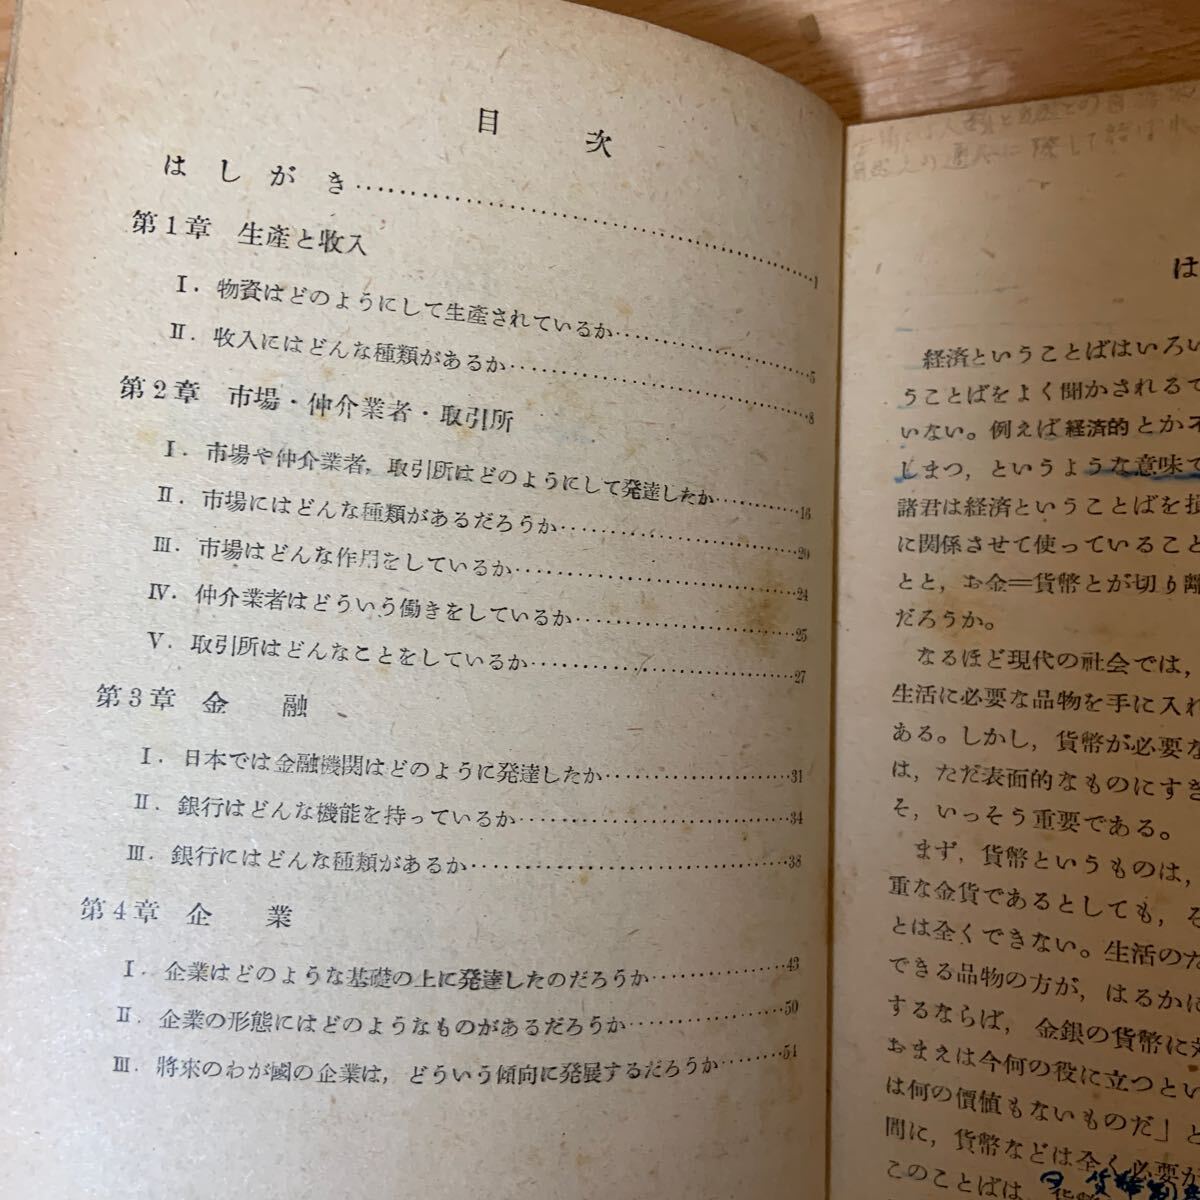 目　次
はしがき……………………1
第1章　生産と收入
Ⅰ．物資はどのようにして生産されているか……………5
Ⅱ．收入にはどんな種類があるか……………8
第2章　市場・仲介業者・取引所
Ⅰ．市場や仲介業者，取引所はどのようにして発達したか…………16
Ⅱ．市場にはどんな種類があるだろうか……………20
Ⅲ．市場はどんな作用をしているか……………24
Ⅳ．仲介業者はどういう働きをしているか……………25
Ⅴ．取引所はどんなことをしているか……………27
第3章　金　融
Ⅰ．日本では金融機関はどのように発達したか……………31
Ⅱ．銀行はどんな機能を持っているか……………34
Ⅲ．銀行にはどんな種類があるか……………38
第4章　企　業
Ⅰ．企業はどのような基礎の上に発達したのだろうか…………43
Ⅱ．企業の形態にはどのようなものがあるだろうか…………50
Ⅲ．將来のわが國の企業は，どういう傾向に発展するだろうか………54
は
経済ということばはいろい
うことばをよく聞かされるで
いない。例えば経済的とかそ
しまつ，というような意味で
諸君は経済ということばを損
に関係させて使っていること
とと，お金＝貨幣とが切り離
だろうか。
なるほど現代の社会では，
生活に必要な品物を手に入れ
ある。しかし，貨幣が必要な
は，ただ表面的なものにすぎ
そ，いっそう重要である。
まず，貨幣というものは，
重な金貨であるとしても，そ
とは全くできない。生活のた
できる品物の方が，はるかに
するならば，金銀の貨幣に対
おまえは今何の役に立つとい
は何の價値もないものだ」と
間に，貨幣などは全く必要が
このことばは，貨幣